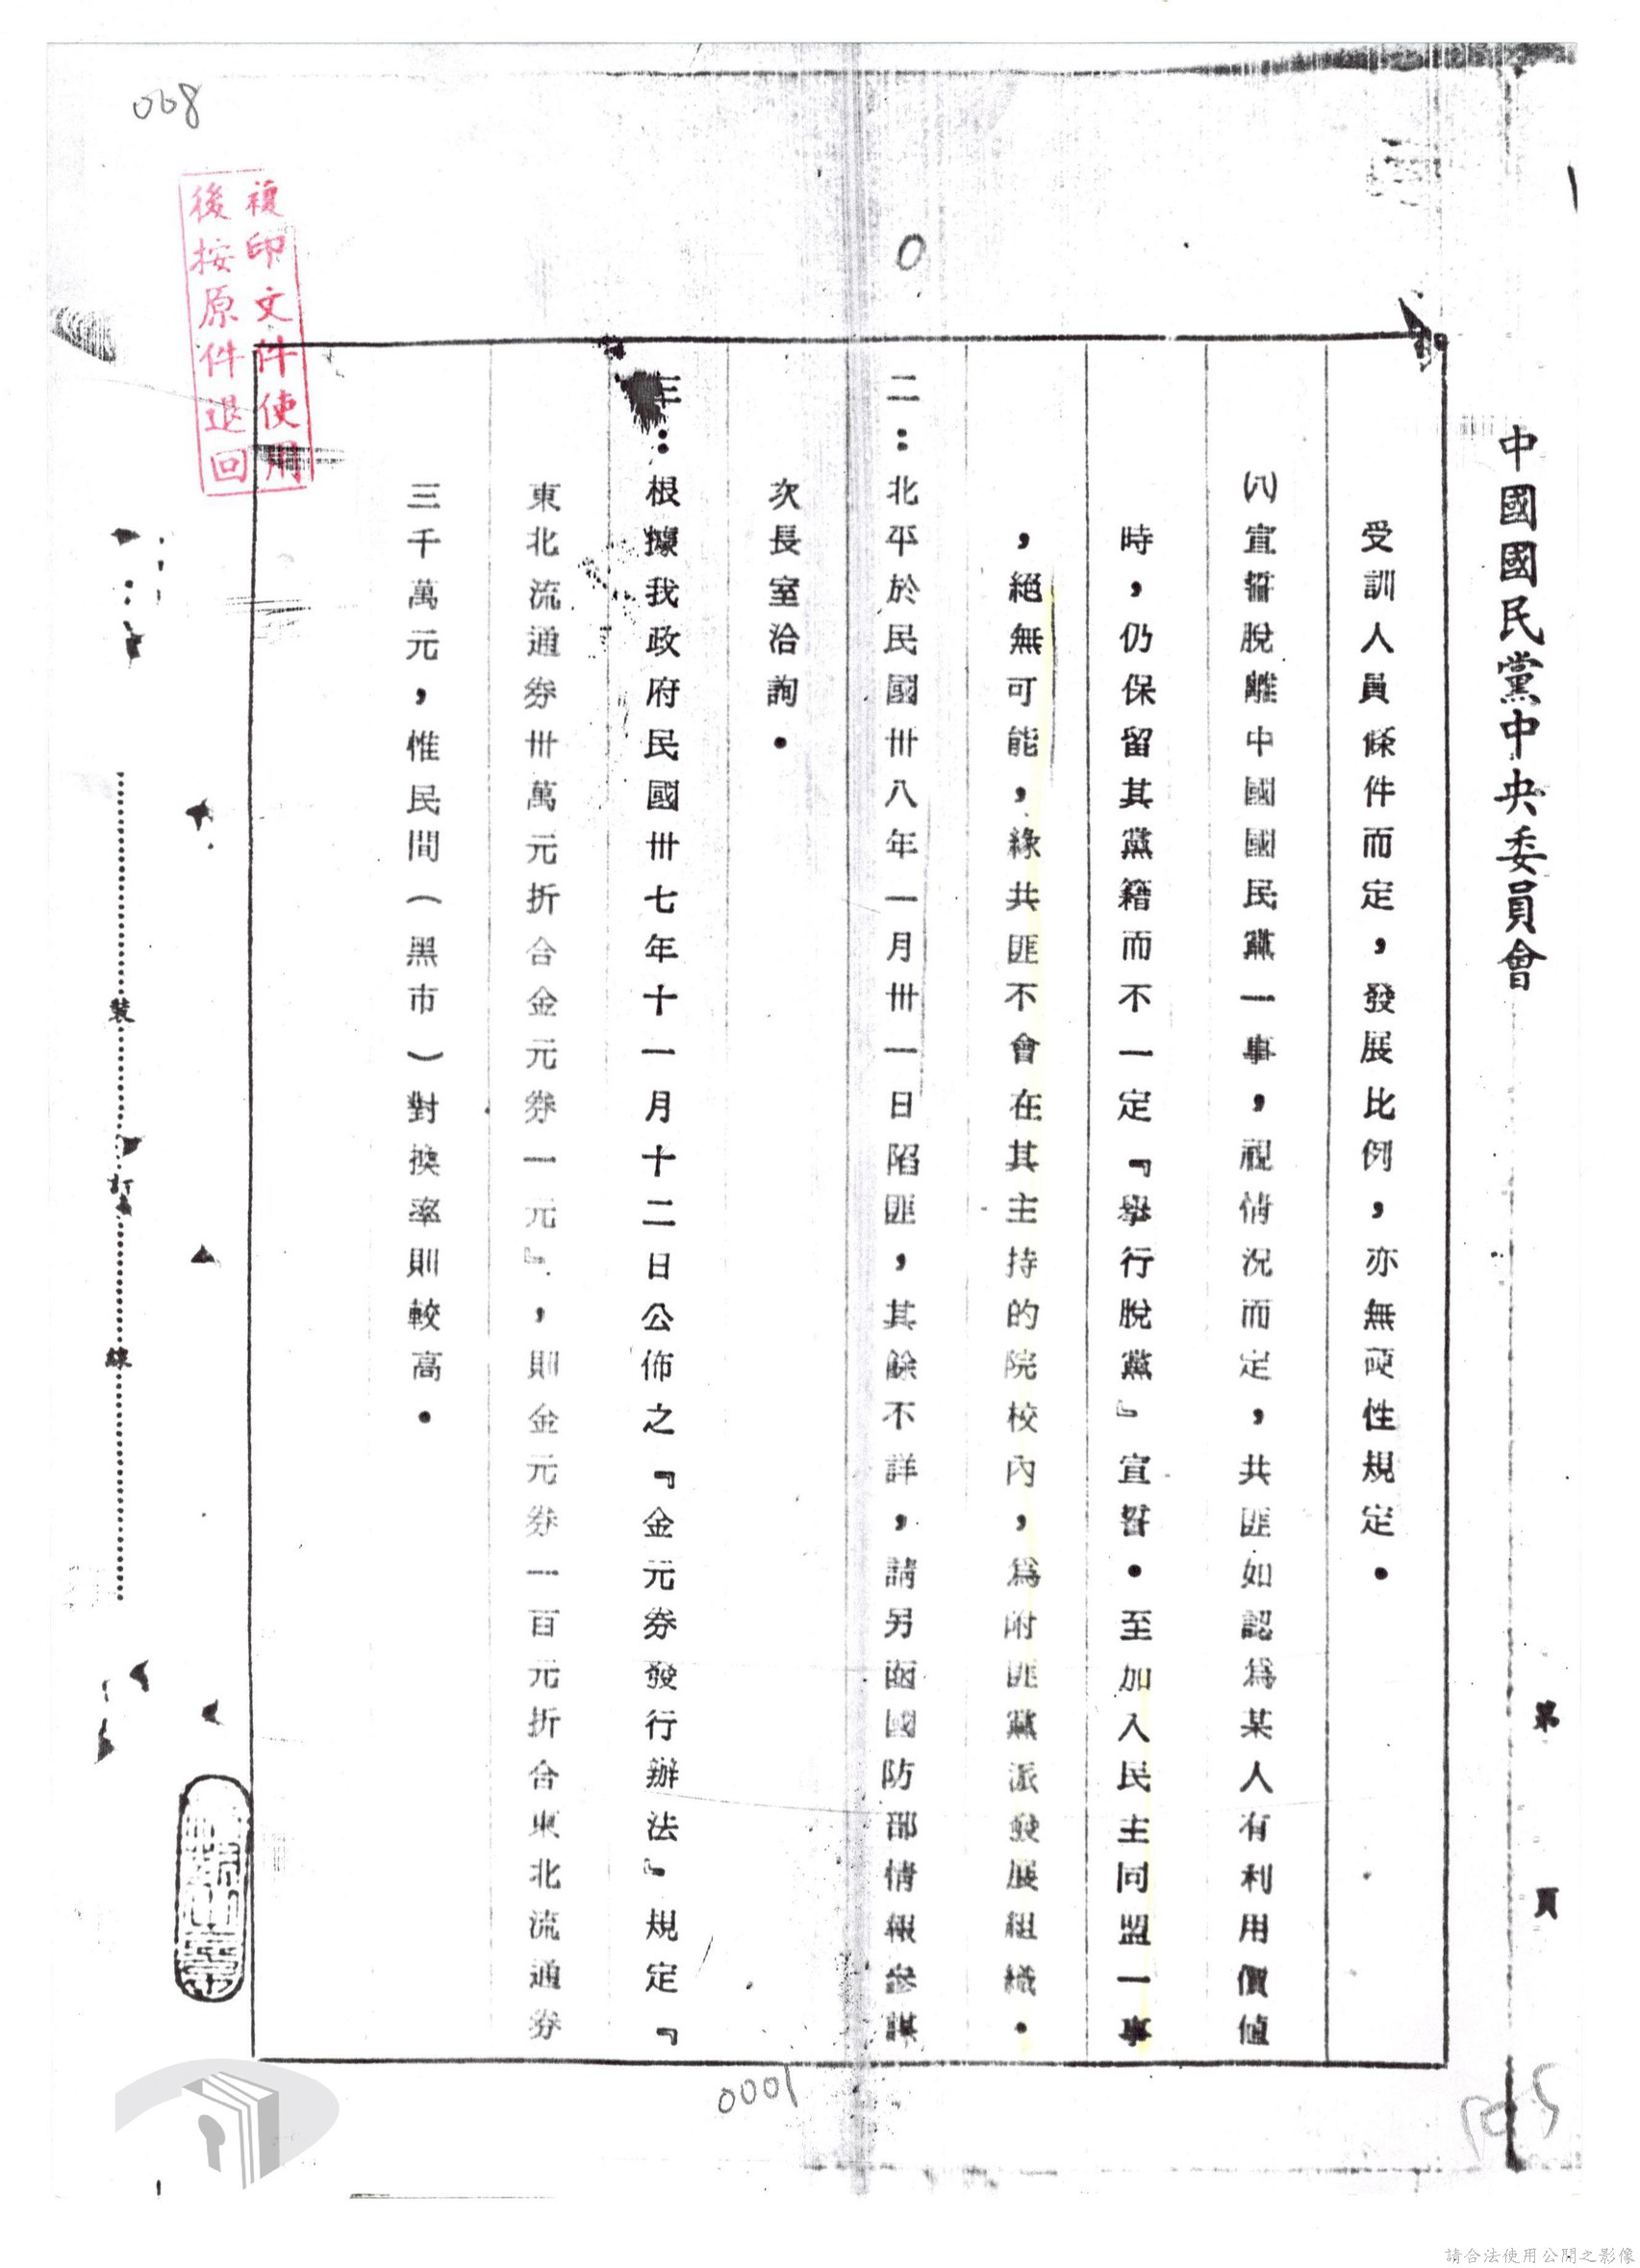 中國國民黨中央委員會
第 頁
受訓人員條件而定，發展比例，亦無硬性規定．
㈧宣誓脫離中國國民黨一事，視情況而定，共匪如認爲某人有利用價値
時，仍保留其黨籍而不一定『舉行脫黨』宣誓．至加入民主同盟一事
，絕無可能，緣共匪不會在其主持的院校內，爲附匪黨派發展組織．
二：北平於民國卅八年一月卅一日陷匪，其餘不詳，請另函國防部情報參謀
次長室洽詢．
三：根據我政府民國卅七年十一月十二日公佈之『金元券發行辦法』規定『
東北流通券卅萬元折合金元券一元』，則金元券一百元折合東北流通券
三千萬元，惟民間（黑市）對換率則較高．
複印文件使用
後按原件退回
裝
訂
線
008
0
0001
請合法使用公開之影像